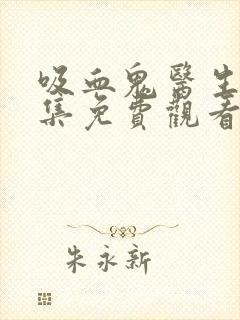 吸血鬼醫生
集免費觀看
朱永新